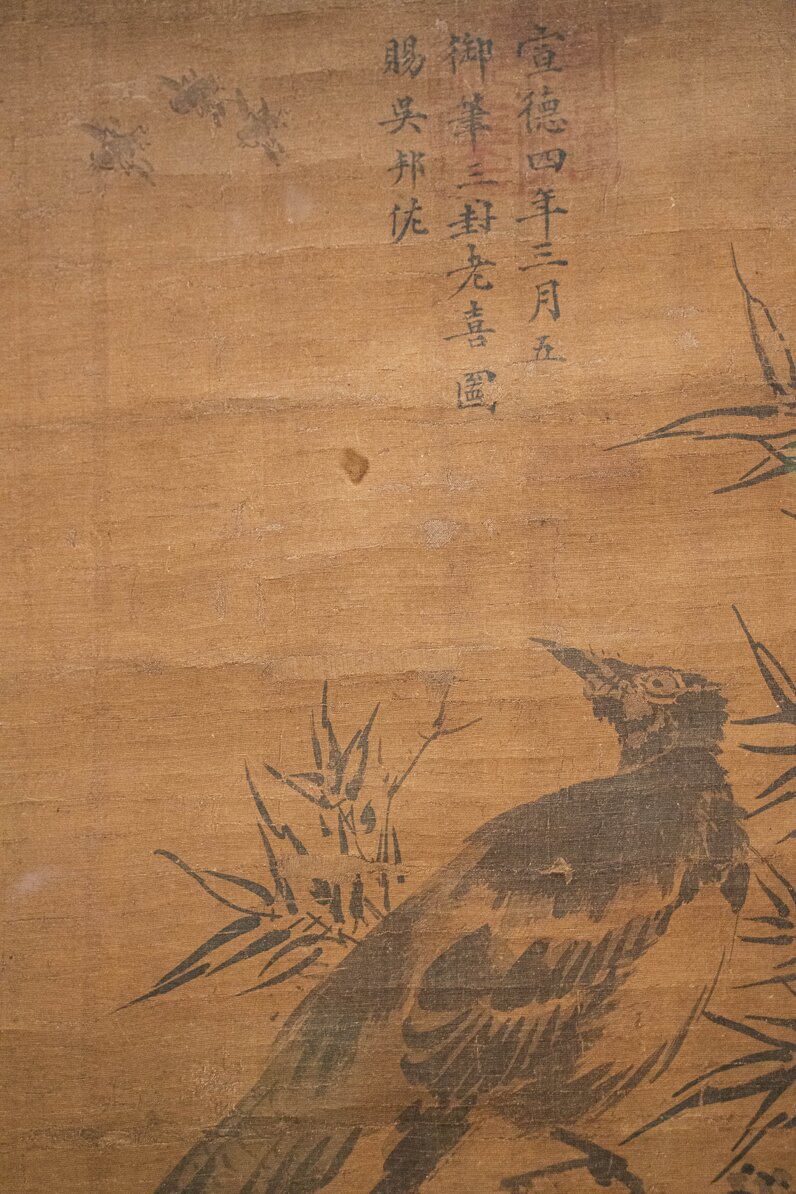 宣德四年三月五
御筆三封老喜圖
賜吳邦佐